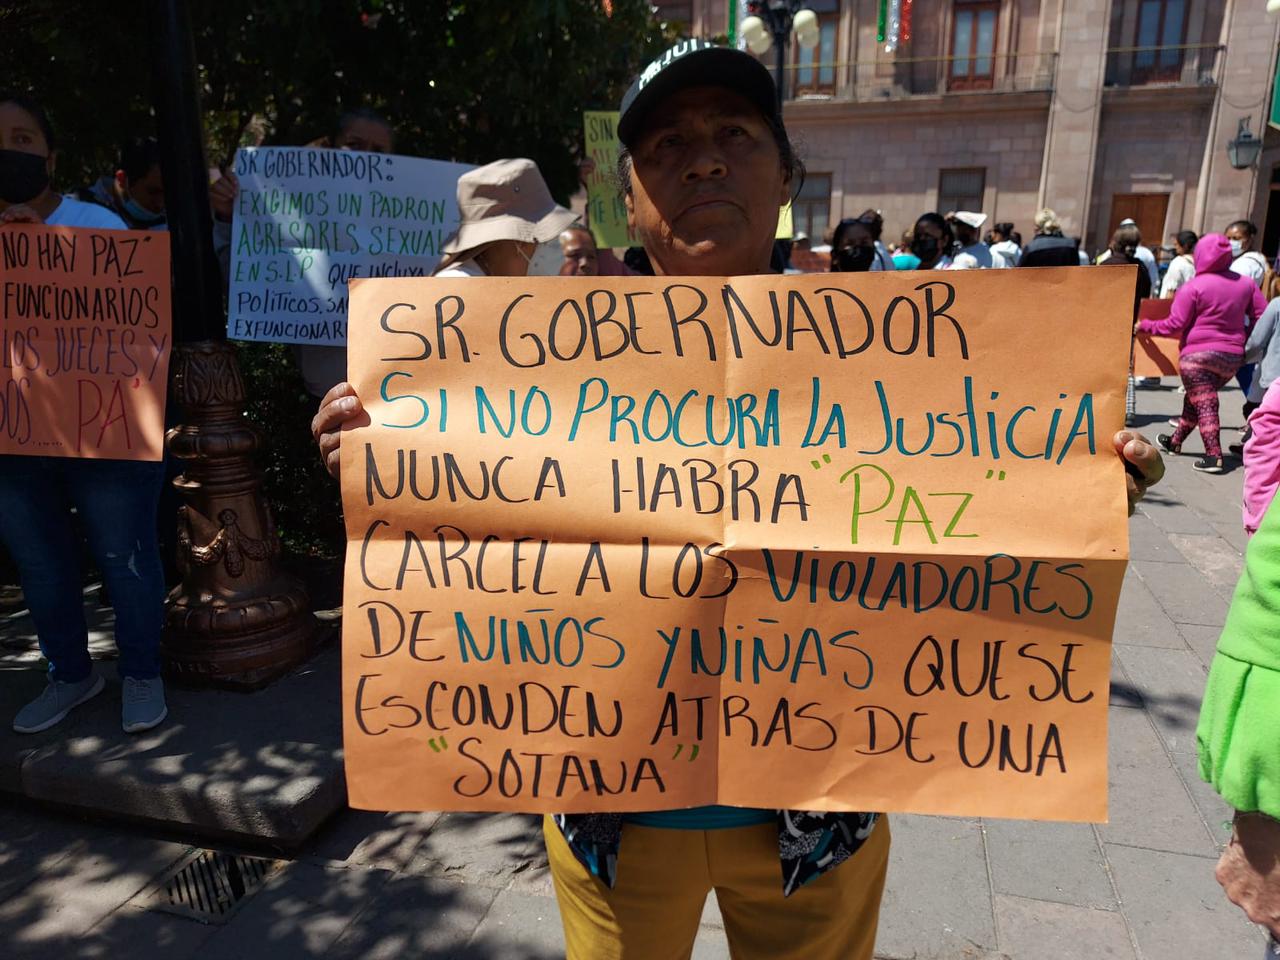 NO HAY PAZ"
FUNCIONARIOS
LOS JUECES Y
PA"
SR. GOBERNADOR:
EXIGIMOS UN PADRON
AGRESORES
EN S.L.P QUE INCLUYA
POLITICOS,
"SIN
TE
SR. GOBERNADOR
SI NO PROCURA LA JUSTICIA
NUNCA HABRA "PAZ"
CARCEL A LOS VIOLADORES
DE NIÑOS Y NIÑAS QUE SE
ESCONDEN ATRAS DE UNA
"SOTANA"